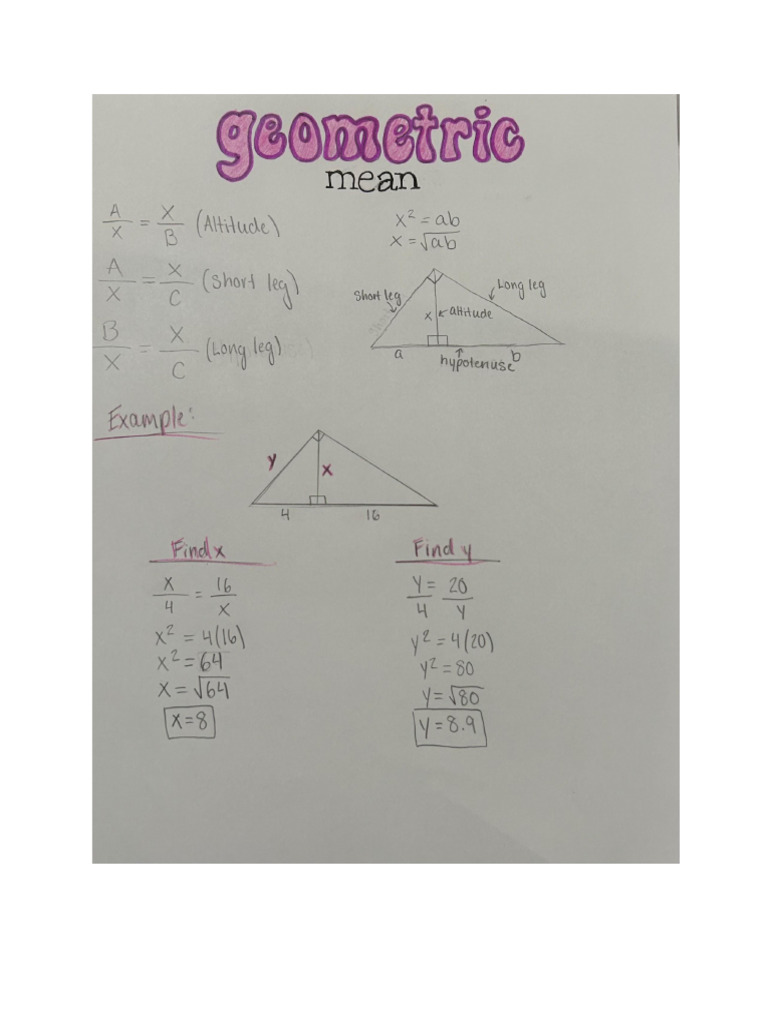 geometric
mean
A/X = X/B (Altitude)
x² = ab
x = √ab
A/X = X/C (Short leg)
B/X = X/C (Long leg)
Short leg
Long leg
x
altitude
a
b
hypotenuse
Example:
y
x
4
16
Find x
x/4 = 16/x
x² = 4(16)
x² = 64
x = √64
x = 8
Find y
y/4 = 20/y
y² = 4(20)
y² = 80
y = √80
y = 8.9